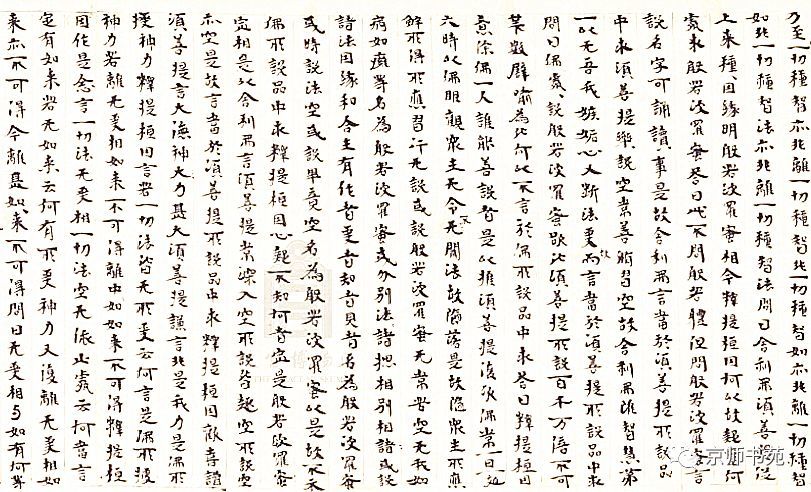 乃至一切種智亦非離一切種智非一切種智如亦非離一切種智
如非一切種智法亦非離一切種智法問曰舍利弗須菩提從
上來種種因緣明般若波羅蜜相今釋提桓因何以故起如何
處求般若波羅蜜荅曰此不問般若體但問般若波羅蜜言
說名字可誦讀事是故舍利弗言當於須菩提所說品
中求須菩提樂說空常善脩習空故舍利弗雖智慧第
一以无吾我嫉妬心又斷法愛故而言當於須菩提所說品中求
問曰佛處處說般若波羅蜜欲比須菩提所說百千万倍不可
筭數譬喻為比何以不言於佛所說品中求荅曰釋提桓因
意除佛一人誰能善說者是以推須菩提復次佛常一日一夜
六時以佛眼觀衆生无令无聞法故墮落是故隨衆生所應
解所得所應習行而說或說般若波羅蜜无常苦空无我如
病如癰等名為般若波羅蜜或分別法諸惣相別相諸或說
諸法因緣和合生有作者受者知者見者名為般若波羅蜜
或時說法空或說畢竟空名為般若波羅蜜以是故不求
佛所說品中求釋提桓因心起不知何者定是般若波羅蜜
定相是以舍利弗言須菩提常深入空所說皆趣空所說空
亦空是故言當於須菩提所說品中求釋提桓因歡喜讚
須菩提言大德神力甚大須菩提謙言非是我力是佛所
授神力釋提桓因言若一切法皆无所受云何言是佛所授
神力若離无受相如來不可得離中如如來不可得釋提桓
因作是念言一切法无受相一切法空无依止處云何當言
定有如來若无如來云何有所受神力又復離无受相如
來亦不可得今離是如來不可得問曰无受相与如有何等
京师书苑